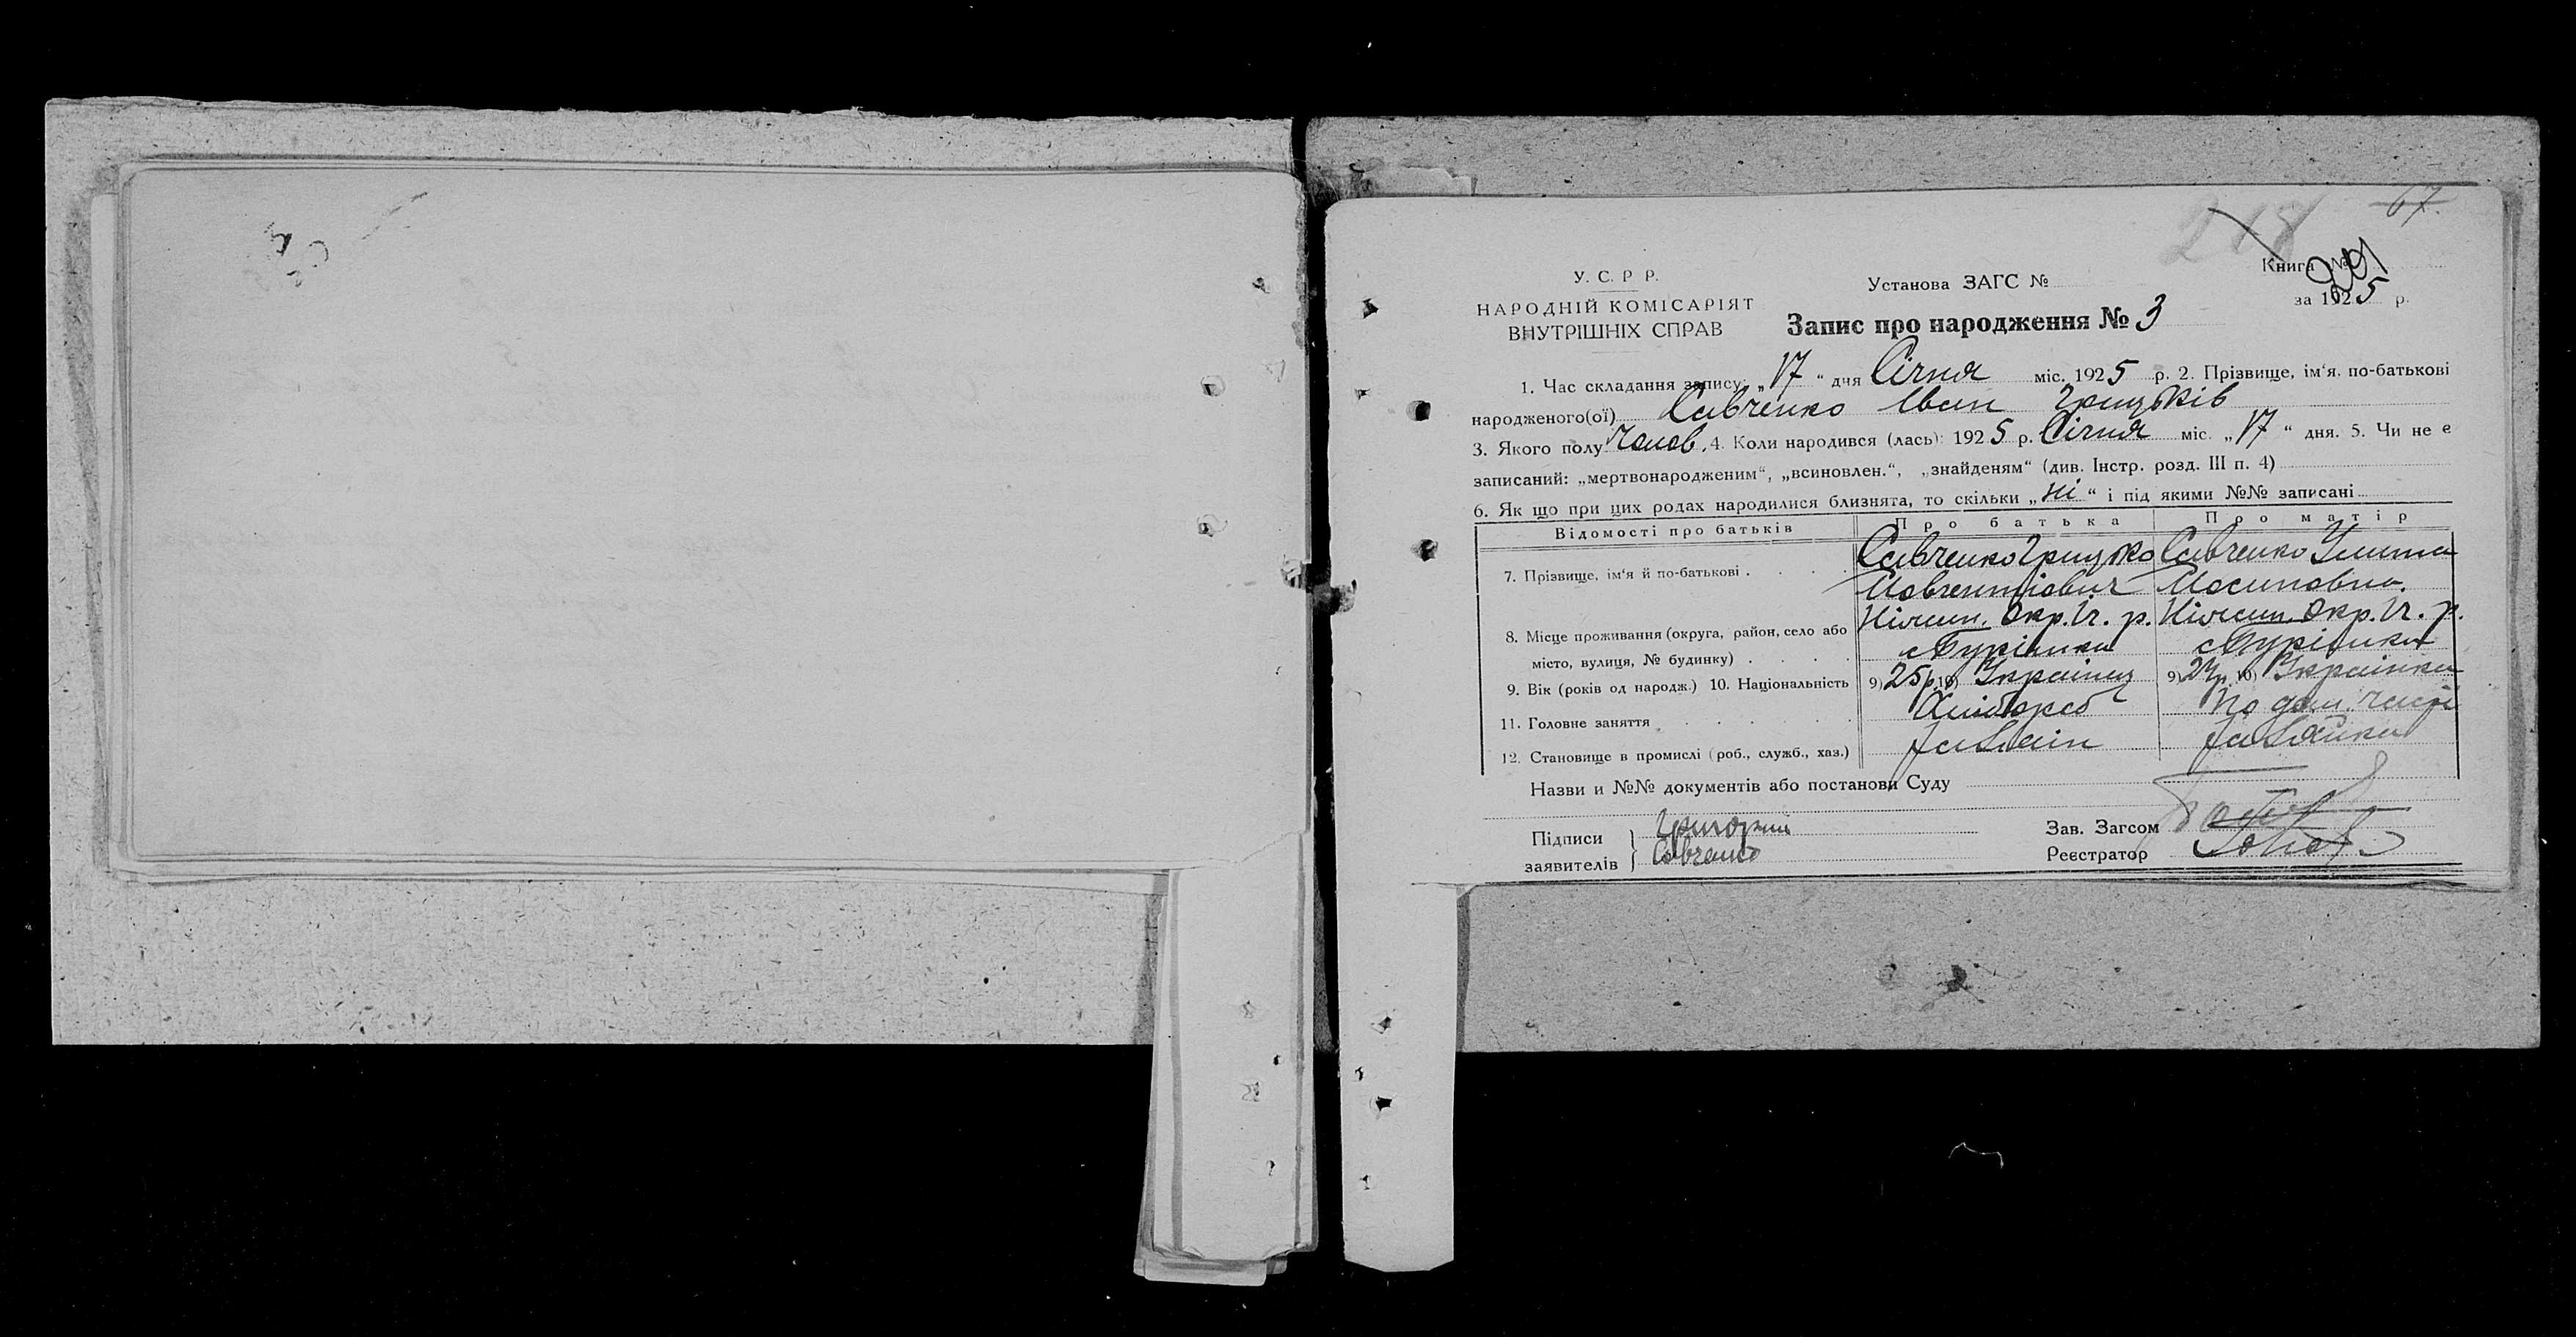 67.
218
У. С. Р Р.
НАРОДНІЙ КОМІСАРІЯТ
ВНУТРІШНІХ СПРАВ
Установа ЗАГС №
Книга №
за 1925 р.
Запис про народження № 3
1. Час складання запису: „17“ дня Січня міс. 1925 р. 2. Прізвище, ім‘я, по-батькові
народженого(ої) Савченко Іван Грицьків
3. Якого полу Чолов. 4. Коли народився (лась): 1925 р. Січня міс. „17“ дня. 5. Чи не є
записаний: „мертвонародженим“, „всиновлен.“, „знайденям“ (див. Інстр. розд. III п. 4)
6. Як що при цих родах народилися близнята, то скільки „ні“ і під якими №№ записані
Відомості про батьків Про батька Про матір
7. Прізвище, ім‘я й по-батькові . . . . Савченко Грицько Савченко Улита
Иосиповна.
8. Місце проживання (округа, район, село або Ніжин. Окр. Іч. р. Ніжин. Окр. Іч. р.
місто, вулиця, № будинку) . . . .
9. Вік (років од народж.) 10. Національність 9) 25 р. 10) Украінец 9) 10) Украінка
11. Головне заняття . . . . . . Хлібороб По дом. части
12. Становище в промислі (роб., служб., хаз.) Хазяін Хазяйка
Назви и №№ документів або постанови Суду
Підписи
заявителів
Григорий
Савченко
Зав. Загсом
Реєстратор